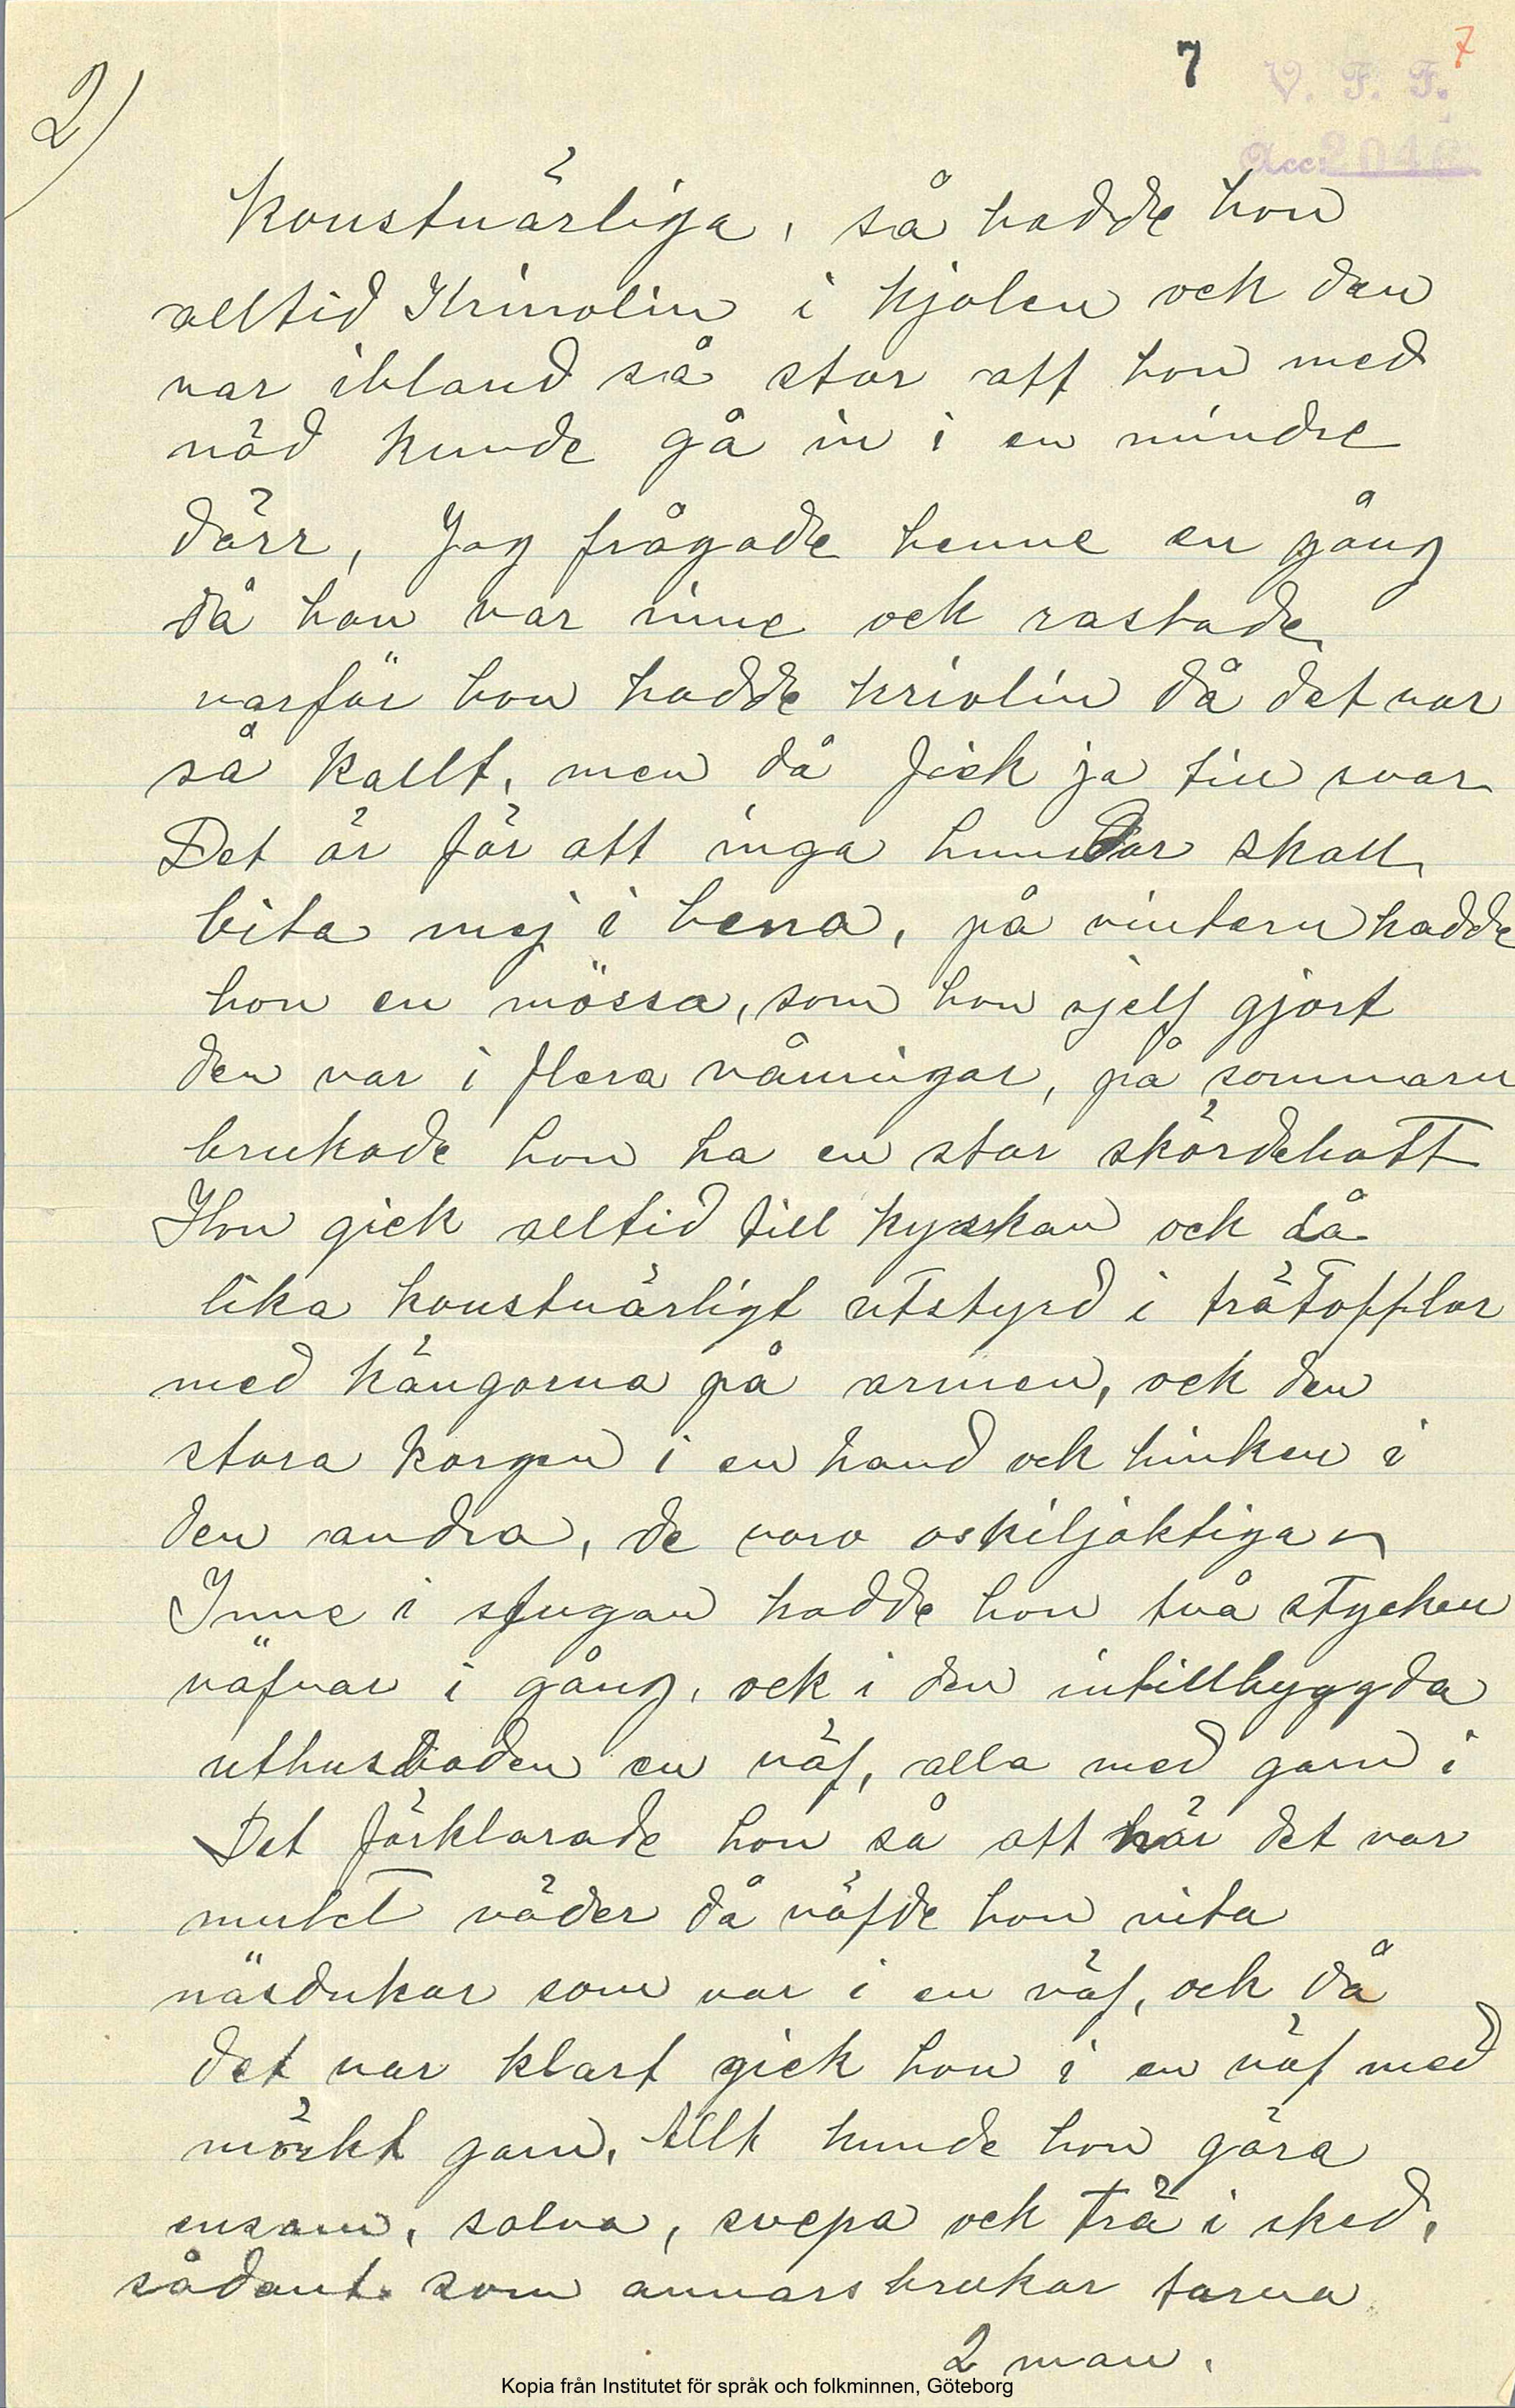 2)
7
7
V. F. F.
Acc. 2046
Konstnärliga, så hadde hon
alltid Krinolin i kjolen och den
var ibland så stor att hon med
nöd kunde gå in i en mindre
dörr, Jag frågade henne en gång
då hon var inne och rastade
varför hon hadde kriolin då det var
så kallt, men då fick ja till svar
Det är för att inga hundar skall
bita mej i bena, på vintern hadde
hon en mössa, som hon sjelf gjort
den var i flera våningar, på sommarn
brukade hon ha en stor skördehatt
Hon gick alltid till kyrkan och då
lika konstnärligt utstyrd i trätofflor
med kängorna på armen, och den
stora korgen i en hand och hinken i
den andra, de voro oskiljaktiga
Inne i stugan hadde hon två stycken
väfvar i gång, och i den intillbyggda
uthusboden en väf, alla med garn i
Det förklarade hon så att när det var
mulet väder då väfde hon vita
näsdukar som var i en väf, och då
det var klart gick hon i en väf med
mörkt garn. Allt kunde hon göra
ensam, solva, svepa och trä i sked,
sådant som annars brukar tarva
2 man.
Kopia från Institutet för språk och folkminnen, Göteborg